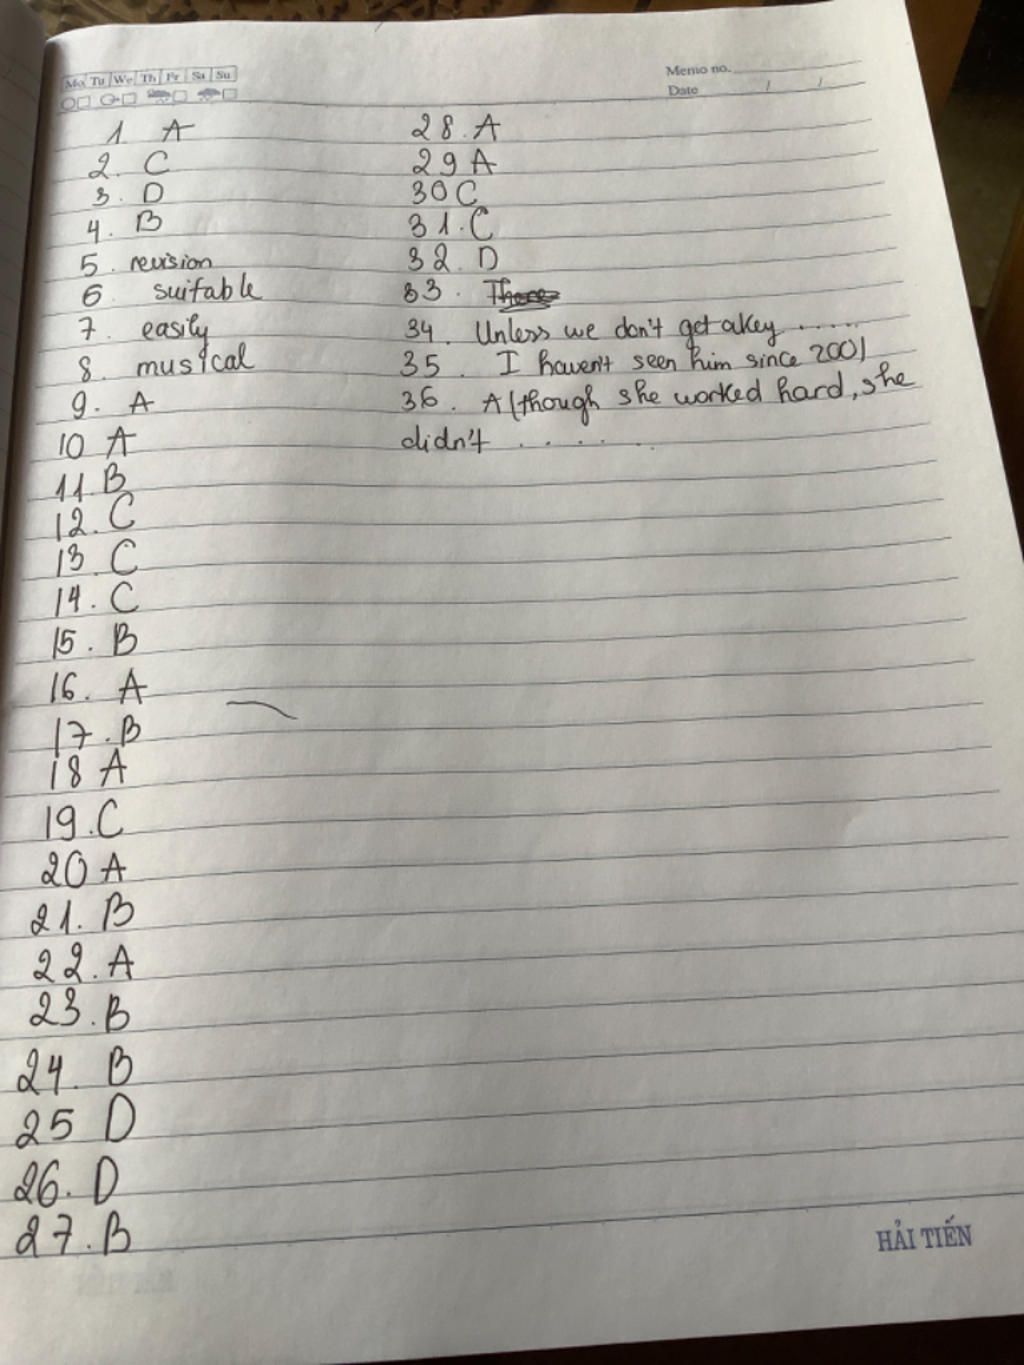 Mo Tu We Th Fr Sa Su
Memo no.
Date / /
1. A
2. C
3. D
4. B
5. revision
6. suitable
7. easily
8. musical
9. A
10 A
11 B
12. C
13 C
14. C
15. B
16. A
17. B
18 A
19. C
20 A
21. B
22. A
23. B
24. B
25 D
26. D
27. B
28. A
29 A
30 C
31. C
32. D
33.
34. Unless we don't get a key ......
35. I haven't seen him since 2001
36. Although she worked hard, she
didn't . . . . .
HẢI TIẾN